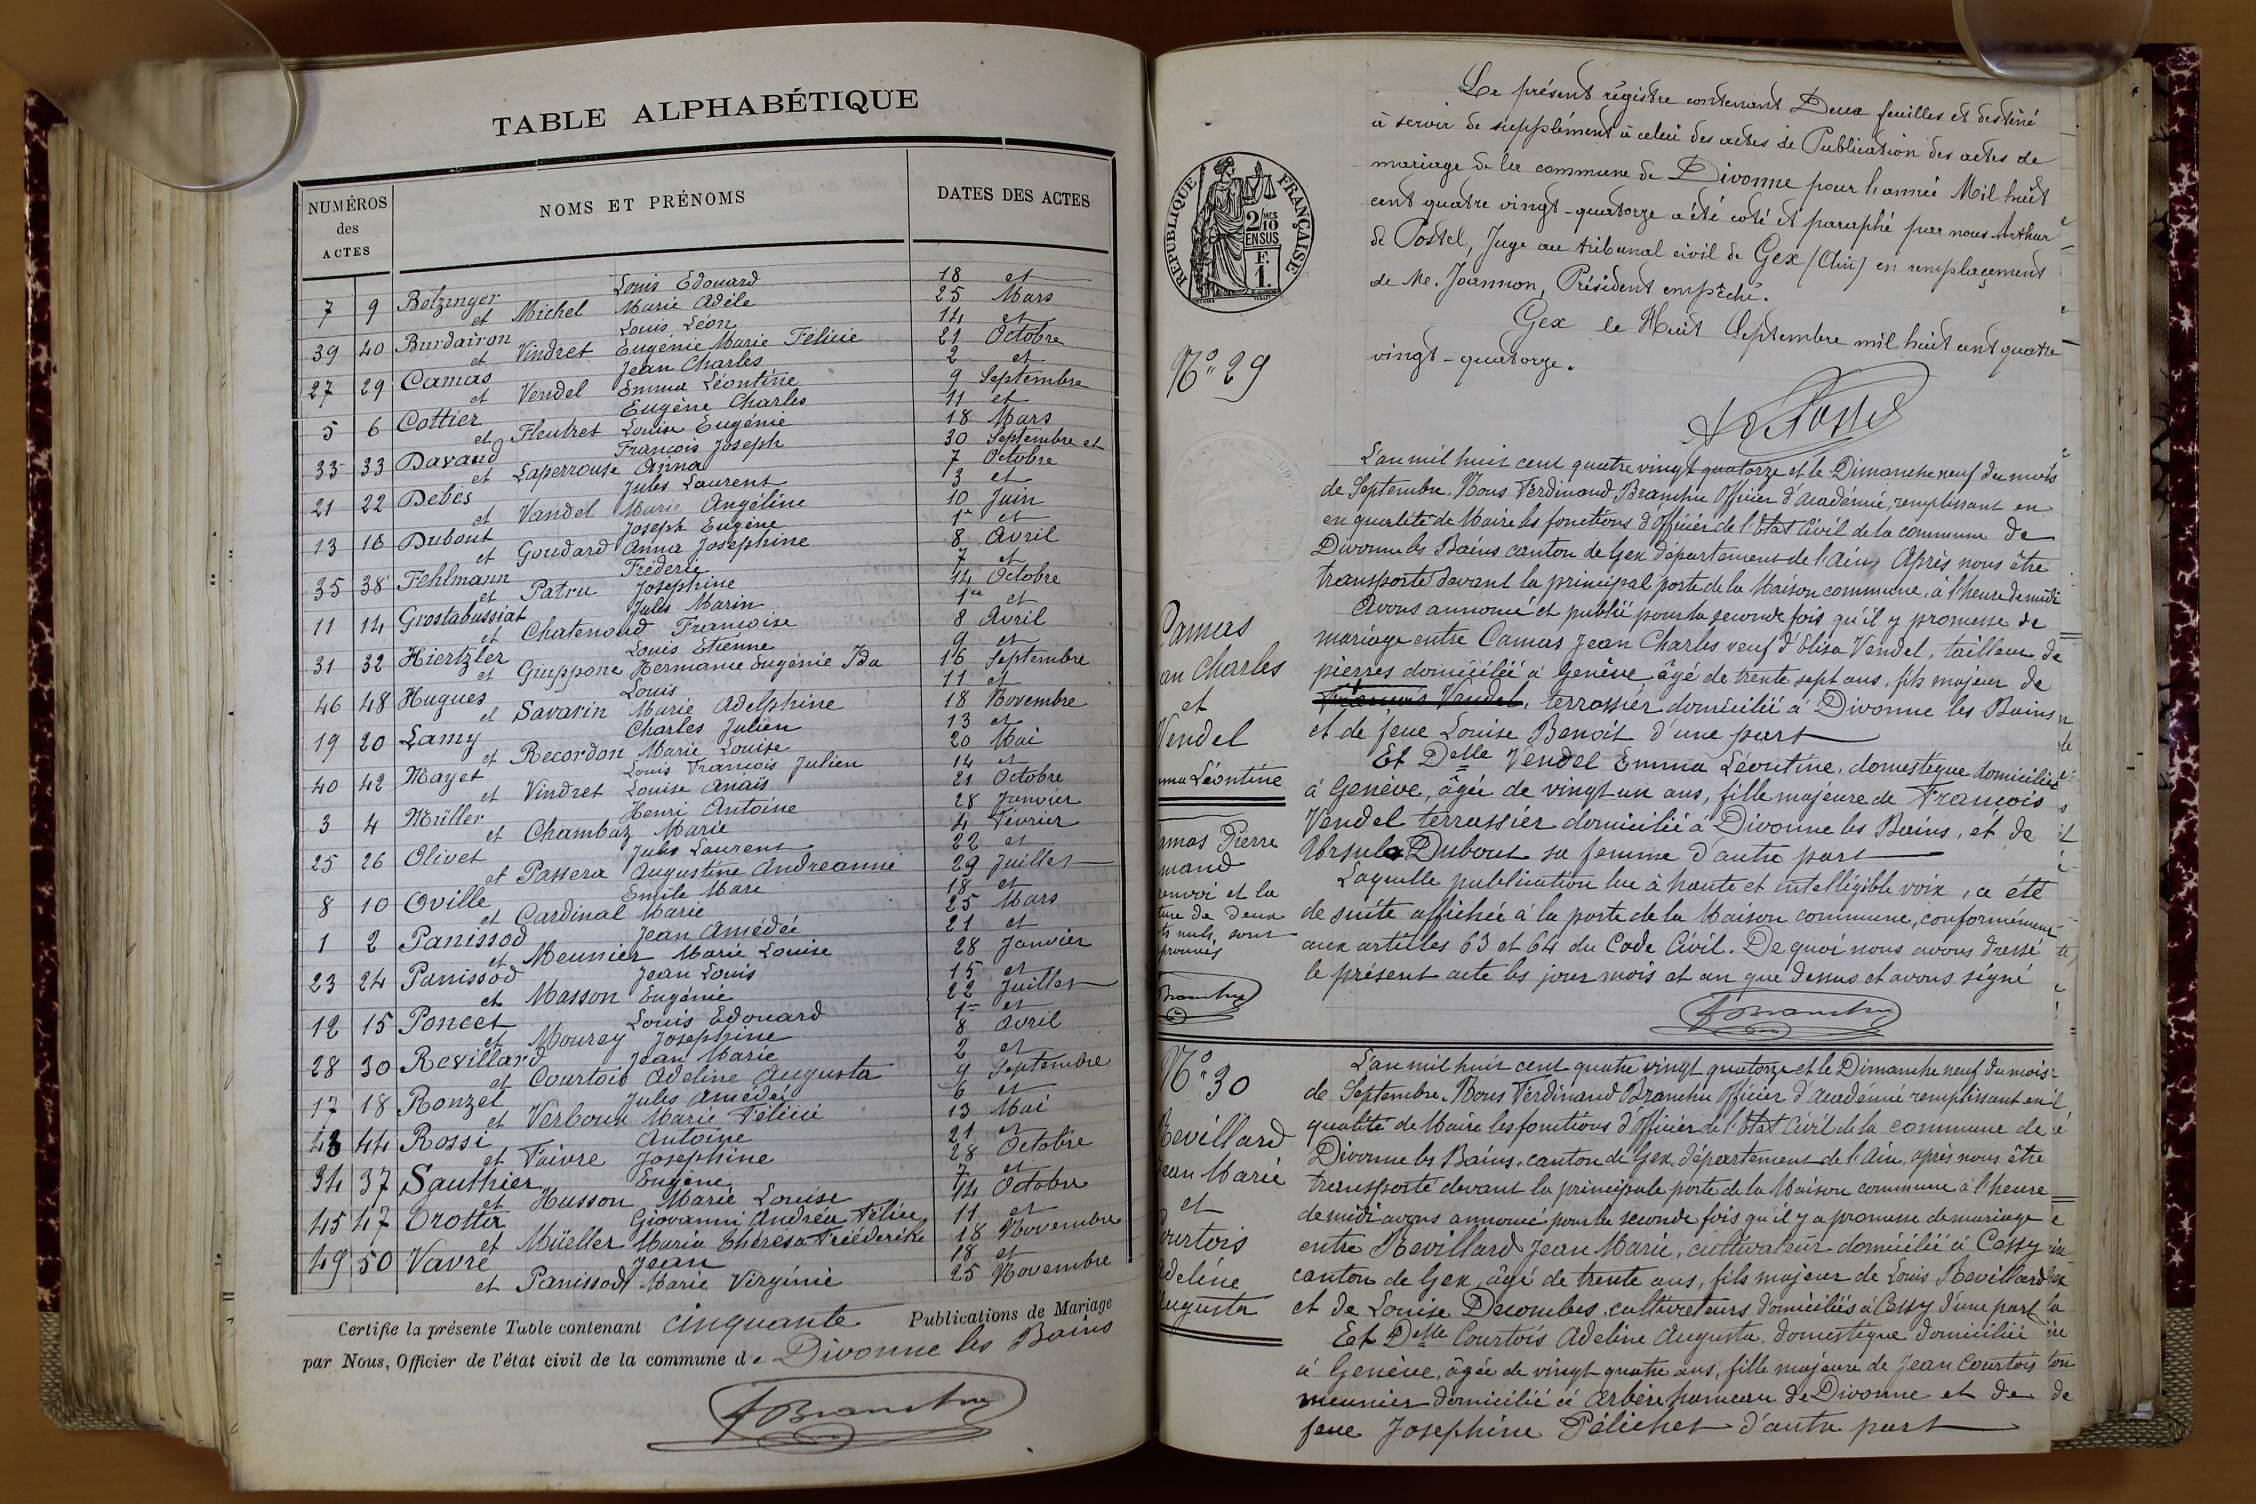 TABLE ALPHABÉTIQUE
NUMÉROS des ACTES
NOMS ET PRÉNOMS
DATES DES ACTES
7 9 Betzinger Louis Edouard 18 et
et Michel Marie Adèle 25 Mars
39 40 Burdairon Louis Léon 14 et
et Vindret Eugénie Marie Félicie 21 Octobre
27 29 Camas Jean Charles 2 et
et Vendel Emma Léontine 9 Septembre
5 6 Cottier Eugène Charles 11 et
et Fleutret Louise Eugénie 18 Mars
33 33 Davaud François Joseph 30 Septembre et
et Laperrouse Anna 7 Octobre
21 22 Debès Jules Laurent 3 et
et Vandel Marie Angéline 10 Juin
13 16 Dubout Joseph Eugène 1er et
et Goudard Anna Josephine 8 Avril
35 38 Fehlmann Fréderic 7 et
et Patru Josephine 14 Octobre
11 14 Grostabussiat Jules Marin 1er et
et Chatenoud Françoise 8 Avril
31 32 Hiertzler Louis Etienne 9 et
et Giuppone Hermanie Eugénie Ida 16 Septembre
46 48 Hugues Louis 11 et
et Savarin Marie Adelphine 18 Novembre
19 20 Lamy Charles Julien 13 et
et Recordon Marie Louise 20 Mai
40 42 Mayet Louis François Julien 14 et
et Vindret Louise Anaïs 21 Octobre
3 4 Müller Henri Antoine 28 Janvier
et Chambaz Marie 4 Février
25 26 Olivet Jules Laurent 22 et
et Passera Augustine Andréanne 29 Juillet
8 10 Oville Emile Marc 18 et
et Cardinal Marie 25 Mars
1 2 Panissod Jean Amédéé 21 et
et Meunier Marie Louise 28 Janvier
23 24 Panissod Jean Louis 15 et
et Masson Eugénie 22 Juillet
12 15 Poncet Louis Edouard 1er et
et Mourey Josephine 8 Avril
28 30 Revillard Jean Marie 2 et
et Courtois Adeline Augusta 9 Septembre
17 18 Ronzel Jules Amédéé 6 et
et Verboux Marie Félicie 13 Mai
43 44 Rossi Antoine 21 et
et Faivre Josephine 28 Octobre
34 37 Sauthier Eugène 7 et
et Husson Marie Louise 14 Octobre
45 47 Trotta Giovanni Andréa Félice 11 et
et Müeller Maria Theresa Friéderike 18 Novembre
49 50 Vavre Jean 18 et
et Panissod Marie Virginie 25 Novembre
Certifie la présente Table contenant cinquante Publications de Mariage
par Nous, Officier de l'état civil de la commune de Divonne les Bains
F Branchu
Le présent régistre contenant Deux feuilles et destiné
à servir de supplément à celui des actes de Publication des actes de
mariage de la commune de Divonne pour l'année Mil huit
cent quatre vingt-quatorze a été coté et paraphé par nous Arthur
de Postel, Juge au tribunal civil de Gex (Ain) en remplacement
de Me. Joannon, Président empêché.
Gex le Huit Septembre mil huit cent quatre
vingt-quatorze.
A de Postel
RÉPUBLIQUE FRANÇAISE
2/10 MES
EN SUS
F.
1.
No 29
Camas
an Charles
et
Vendel
ma Léontine
amas Pierre
mand
renvoi et la
ture de deux
ts nuls, sont
prouvés
Branchu
L'an mil huit cent quatre vingt quatorze et le Dimanche neuf du mois
de Septembre. Nous Ferdinand Branchu Officier d'académie, remplissant en
en qualité de Maire les fonctions d'Officier de l'Etat Civil de la commune de
Divonne les Bains canton de Gex département de l'Ain, Après nous être
transporté devant la principal porte de la Maison commune, à l'heure de midi
Avons annoncé et publié pour la seconde fois qu'il y promesse de
mariage entre Camas Jean Charles veuf d'Elisa Vendel, tailleur de
pierres domicilié à Genève, âgé de trente sept ans, fils majeur de
François Vandel, terrassier domicilié à Divonne les Bains
et de feue Louise Benoit d'une part
Et Delle Vendel Emma Léontine, domestique domiciliée
à Genève, âgée de vingt un ans, fille majeure de François
Vendel terrassier domicilié à Divonne les Bains, et de
Ursule Dubout sa femme d'autre part
Laquelle publication lue à haute et intelligible voix, a été
de suite affichée à la porte de la Maison commune, conformément
aux articles 63 et 64 du Code Civil. De quoi nous avons dressé
le présent acte les jour mois et an que dessus et avons signé
F Branchu
No 30
Revillard
Jean Marie
et
Courtois
Adeline
Augusta
L'an mil huit cent quatre vingt quatorze et le Dimanche neuf du mois
de Septembre. Nous Ferdinand Branchu Officier d'académie remplissant en
qualité de Maire les fonctions d'Officier de l'Etat Civil de la commune de
Divonne les Bains, canton de Gex, département de l'Ain, après nous être
transporté devant la principale porte de la Maison commune à l'heure
de midi avons annoncé pour la seconde fois qu'il y a promesse de mariage
entre Revillard Jean Marie, cultivateur domicilié à Cessy
canton de Gex, âgé de trente ans, fils majeur de Louis Revillard
et de Louise Decombes, cultivateurs domiciliés à Cessy d'une part
Et Delle Courtois Adeline Augusta, domestique domiciliée
à Genève, âgée de vingt quatre ans, fille majeure de Jean Courtois
meunier domicilié à Arbère hameau de Divonne et de
feue Josephine Pélichet d'autre part